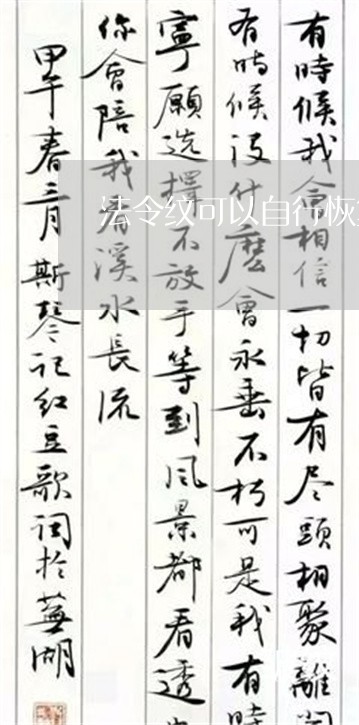 法令纹可以自行恢
有時候我会相信一切皆有尽頭相聚離
有時候没什麽會永垂不朽可是我有時
寧願选擇不放手等到风景都看透
你會陪我看溪水長流
甲午春三月斯琴记红豆歌词於蕪湖